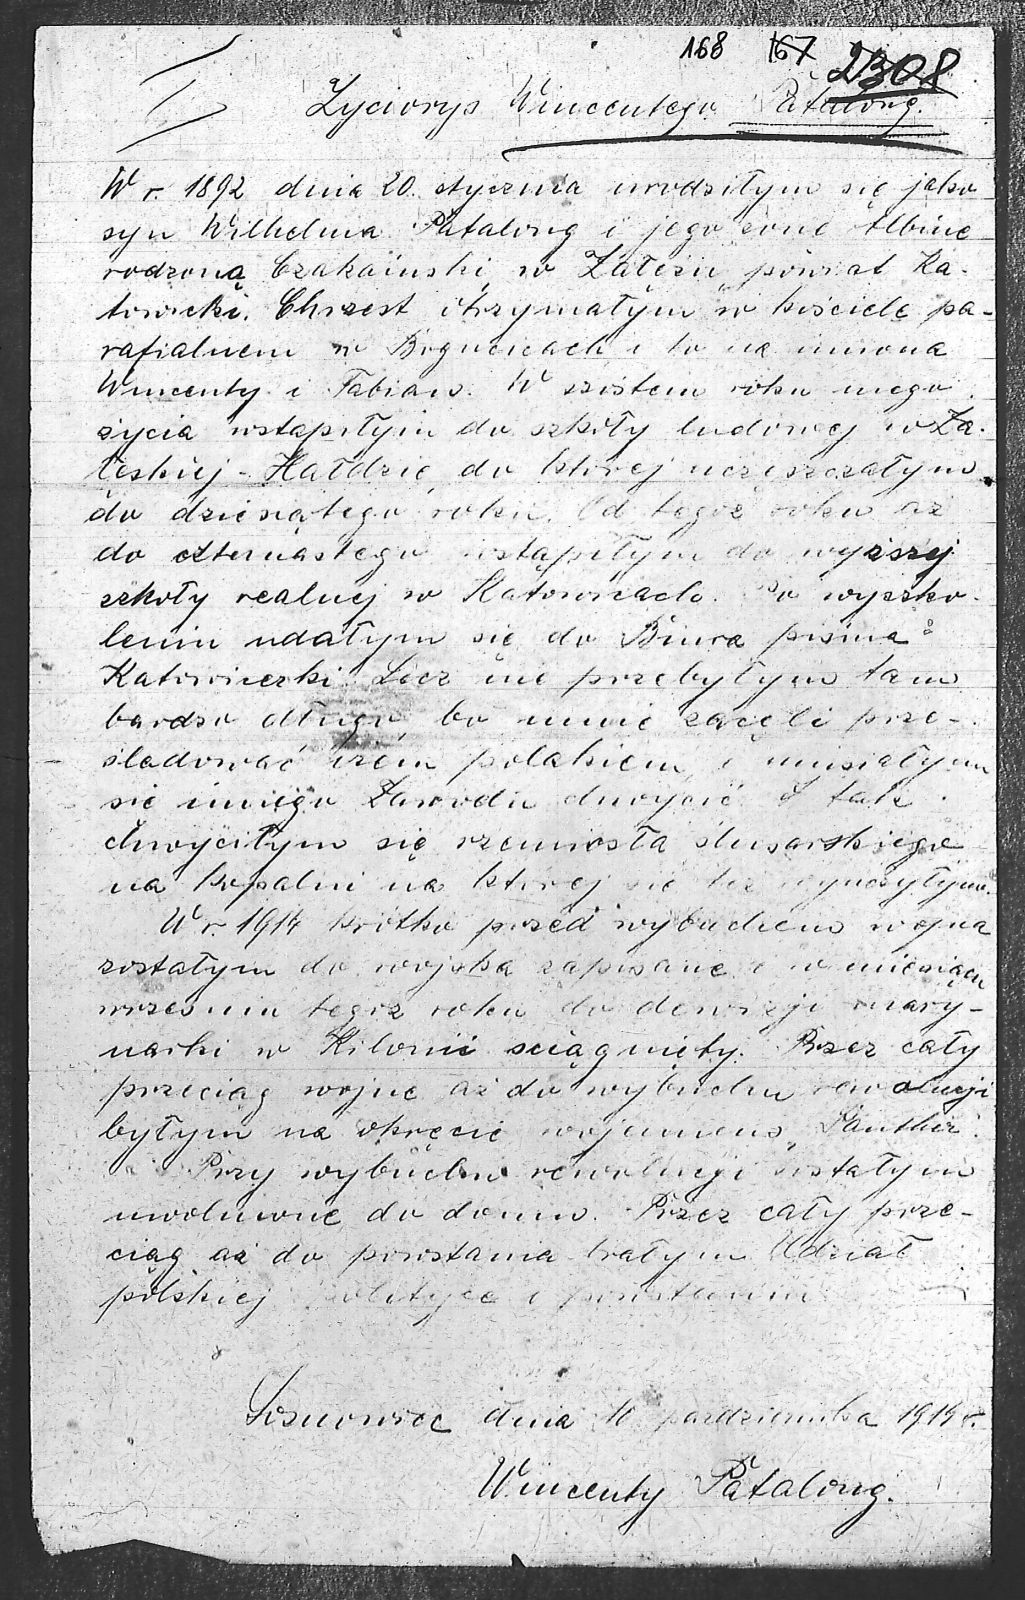 168 167 2308
Życiorys Wincentego Patalong.
W r. 1892 dnia 20. stycznia urodziłym się jako
syn Wilhelma Patalong i jego żone Albine
rodzoną w Załężu, powiat Ka-
towicki. Chrzest otrzymałym w kościele pa-
rafialnem w Bogucicach i to na imiona
Wincenty i Fabian. W szóstem roku mego
życia wstąpiłym do szkoły ludowej w Za-
łęskiej-Hałdzie, do której uczęszczałym
do dziesiątego roku. Od tegoż roku aż
do czternastego wstąpiłym do wyższej
szkoły realnej w Katowicach. Po wyszko-
leniu udałym się do Biura pisma:
Katowiczerki. Lecz nie przebyłym tam
bardzo długo bo mnie zaczęli prze-
śladować iżem polakiem, i musiałym
się innego Zawodu chwycić. I tak
chwyciłym się rzemiosła slusarskiego
na kopalni na której się też wyuczyłym.
W r. 1914 krótko przed wybuchem wojna
zostałym do wojska zapisane i w miesiącu
wrzesniu tegoż roku do dewizji mary-
narki w Kilonii sciągnięty. Przez cały
przeciąg wojne aż do wybuchu rewolucji
byłym na okręcie wojennem „Panthir".
Przy wybuchu rewolucji zostałym
uwolnione do domu. Przez cały prze-
ciąg aż do powstania brałym Udział
polskiej polityce i powstaniu
Sosnowiec dnia 10 pazdziernika 1919 r.
Wincenty Patalong.